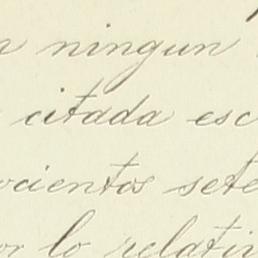 n ningun
citada esc
ocientos sete
or lo relativ